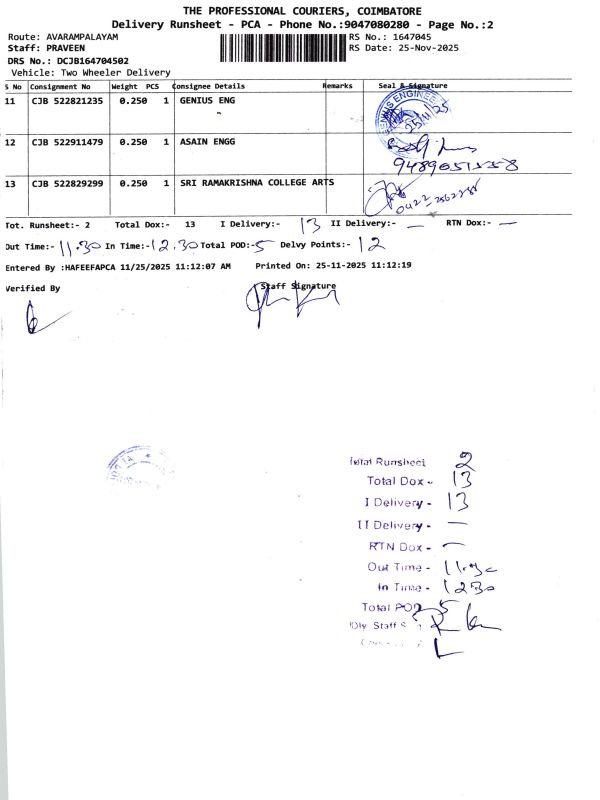 THE PROFESSIONAL COURIERS, COIMBATORE
Delivery Runsheet - PCA - Phone No.:9047080280 - Page No.:2
Route: AVARAMPALAYAM RS No.: 1647045
Staff: PRAVEEN RS Date: 25-Nov-2025
DRS No.: DCJB164704502
Vehicle: Two Wheeler Delivery
S No Consignment No Weight PCS Consignee Details Remarks Seal & Signature
11 CJB 522821235 0.250 1 GENIUS ENG
25/11/25
12 CJB 522911479 0.250 1 ASAIN ENGG
13 CJB 522829299 0.250 1 SRI RAMAKRISHNA COLLEGE ARTS
Tot. Runsheet:- 2 Total Dox:- 13 I Delivery:- 13 II Delivery:- — RTN Dox:- —
Out Time:- 11.30 In Time:- 12.30 Total POD:- 5 Delvy Points:- 12
Entered By :HAFEEFAPCA 11/25/2025 11:12:07 AM Printed On: 25-11-2025 11:12:19
Verified By Staff Signature
Total Runsheet 2
Total Dox - 13
I Delivery - 13
II Delivery - —
RTN Dox - —
Out Time - 11.30
In Time - 1230
Total POD 5
Dly Staff